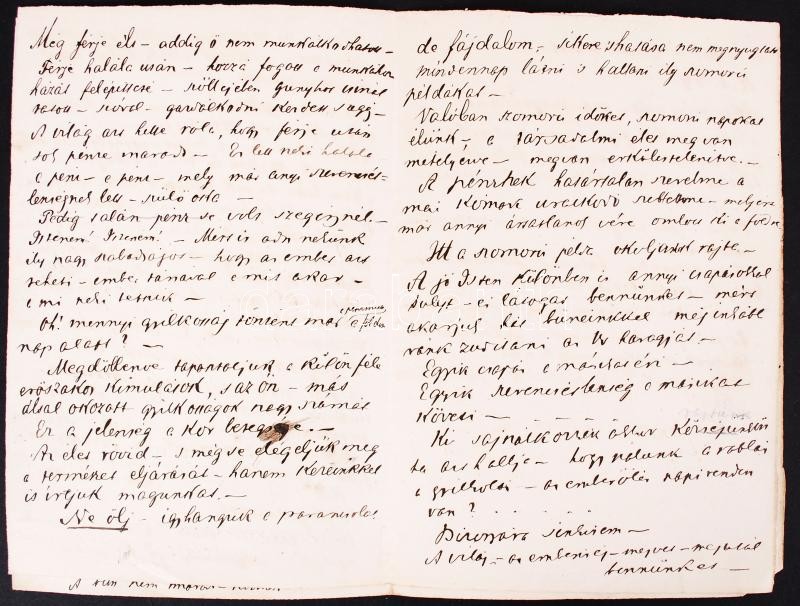 Míg férje élt – addig ő nem munkálkodhatott
Férje halála után – hozzá fogott a munkához
házát felépittete –
A világ azt hitte róla, hogy férje után
sok pénze maradt – Ez lett neki halála
a pénz – e pénz – mely már annyi szerencsét-
lenségnek lett – szülő oka –
Pedig talán pénze se volt szegénynél –
Istenem! Istenem! – Mért is adn nekünk
ily nagy szabadságot – hogy az ember azt
teheti – ember társával a mit akar –
a mi neki tetszik –
Oh! mennyi gyilkosság történt már a földön
nap alatt? –
Megdöbbenve tapasztaljuk a külön féle
erőszakos kimulások, s az ön – más
által okozott gyilkosságok nagy számát
Ez a jelenség a kor betegsége. –
Az élet rövid – s még se elégeljük meg
a természet eljárását – hanem kezeinkkel
is irtjuk magunkat. –
Ne ölj – igy hangzik a parancsolat
A
de fájdalom, – nem
mindennap látni s hallani ily szomorú
példákat –
Valóban szomorú időket, szomorú napokat
élünk – a társadalmi élet meg van
mételyezve – megvan erkölcstelenitve. –
A pénznek határtalan szerelme a
mai kornak uralkodó – melyért
már annyi ártatlanok vére omlott ki a földre
Itt a szomorú példa okuljunk rajta. –
A jó Isten különben is annyi csapásokkal
sulyt – és látogat bennünket – mért
akarjuk hát bűneinkkel még inkább
ránk zuditani az Ur haragját –
Egyik csapás a másikat éri –
Egyik szerencsétlenség a másikat
követi –
Ki sajnálkozzék akkor
ha azt hallja – hogy nálunk a rablás
a gyilkolás – az emberölés napirenden
van? . . . . . .
Bizonyára senkisem –
A világ – az emberiség – megvet – megutál
bennünket –